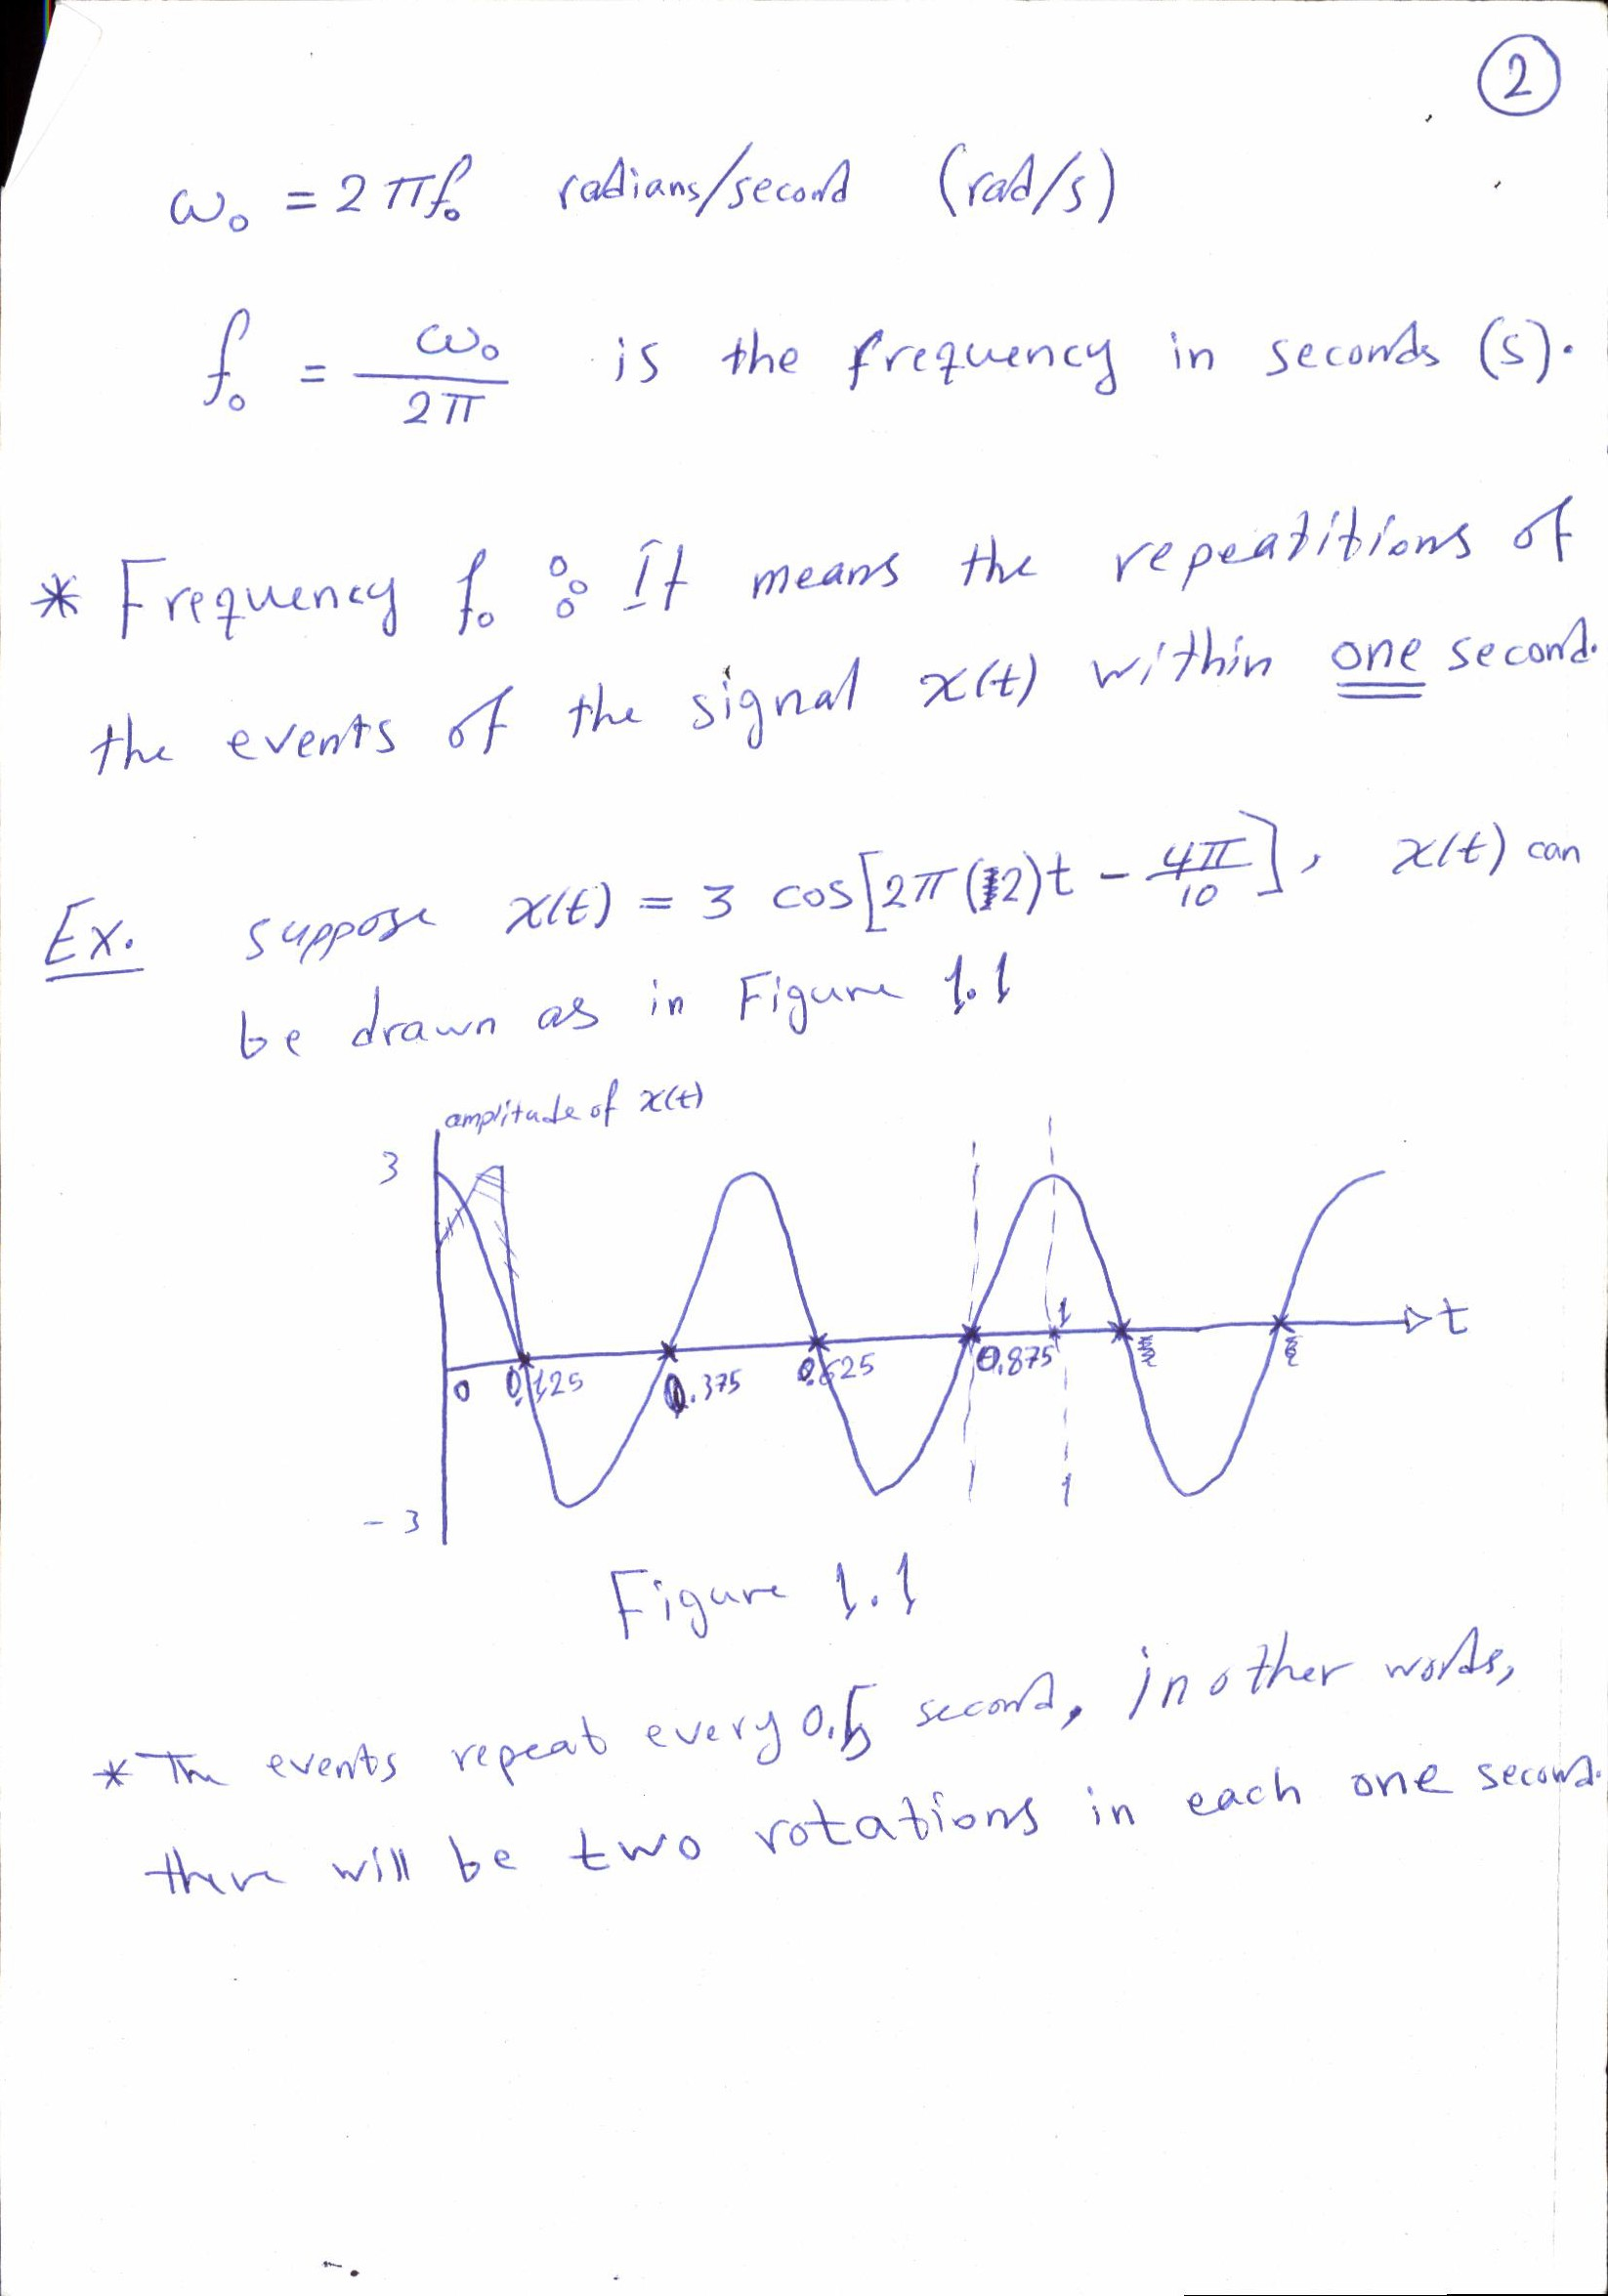 2
ω₀ = 2πf₀ radians/second (rad/s)
f₀ = ω₀/2π is the frequency in seconds (s).
* Frequency f₀ : It means the repeatitions of
the events of the signal x(t) within one second.
Ex. suppose x(t) = 3 cos[2π(2)t - 4π/10], x(t) can
be drawn as in Figure 1.1
amplitude of x(t)
3
1
t
0 0.125 0.375 0.625 0.875
-3
1
Figure 1.1
* The events repeat every 0.5 second, in other words,
there will be two rotations in each one second.